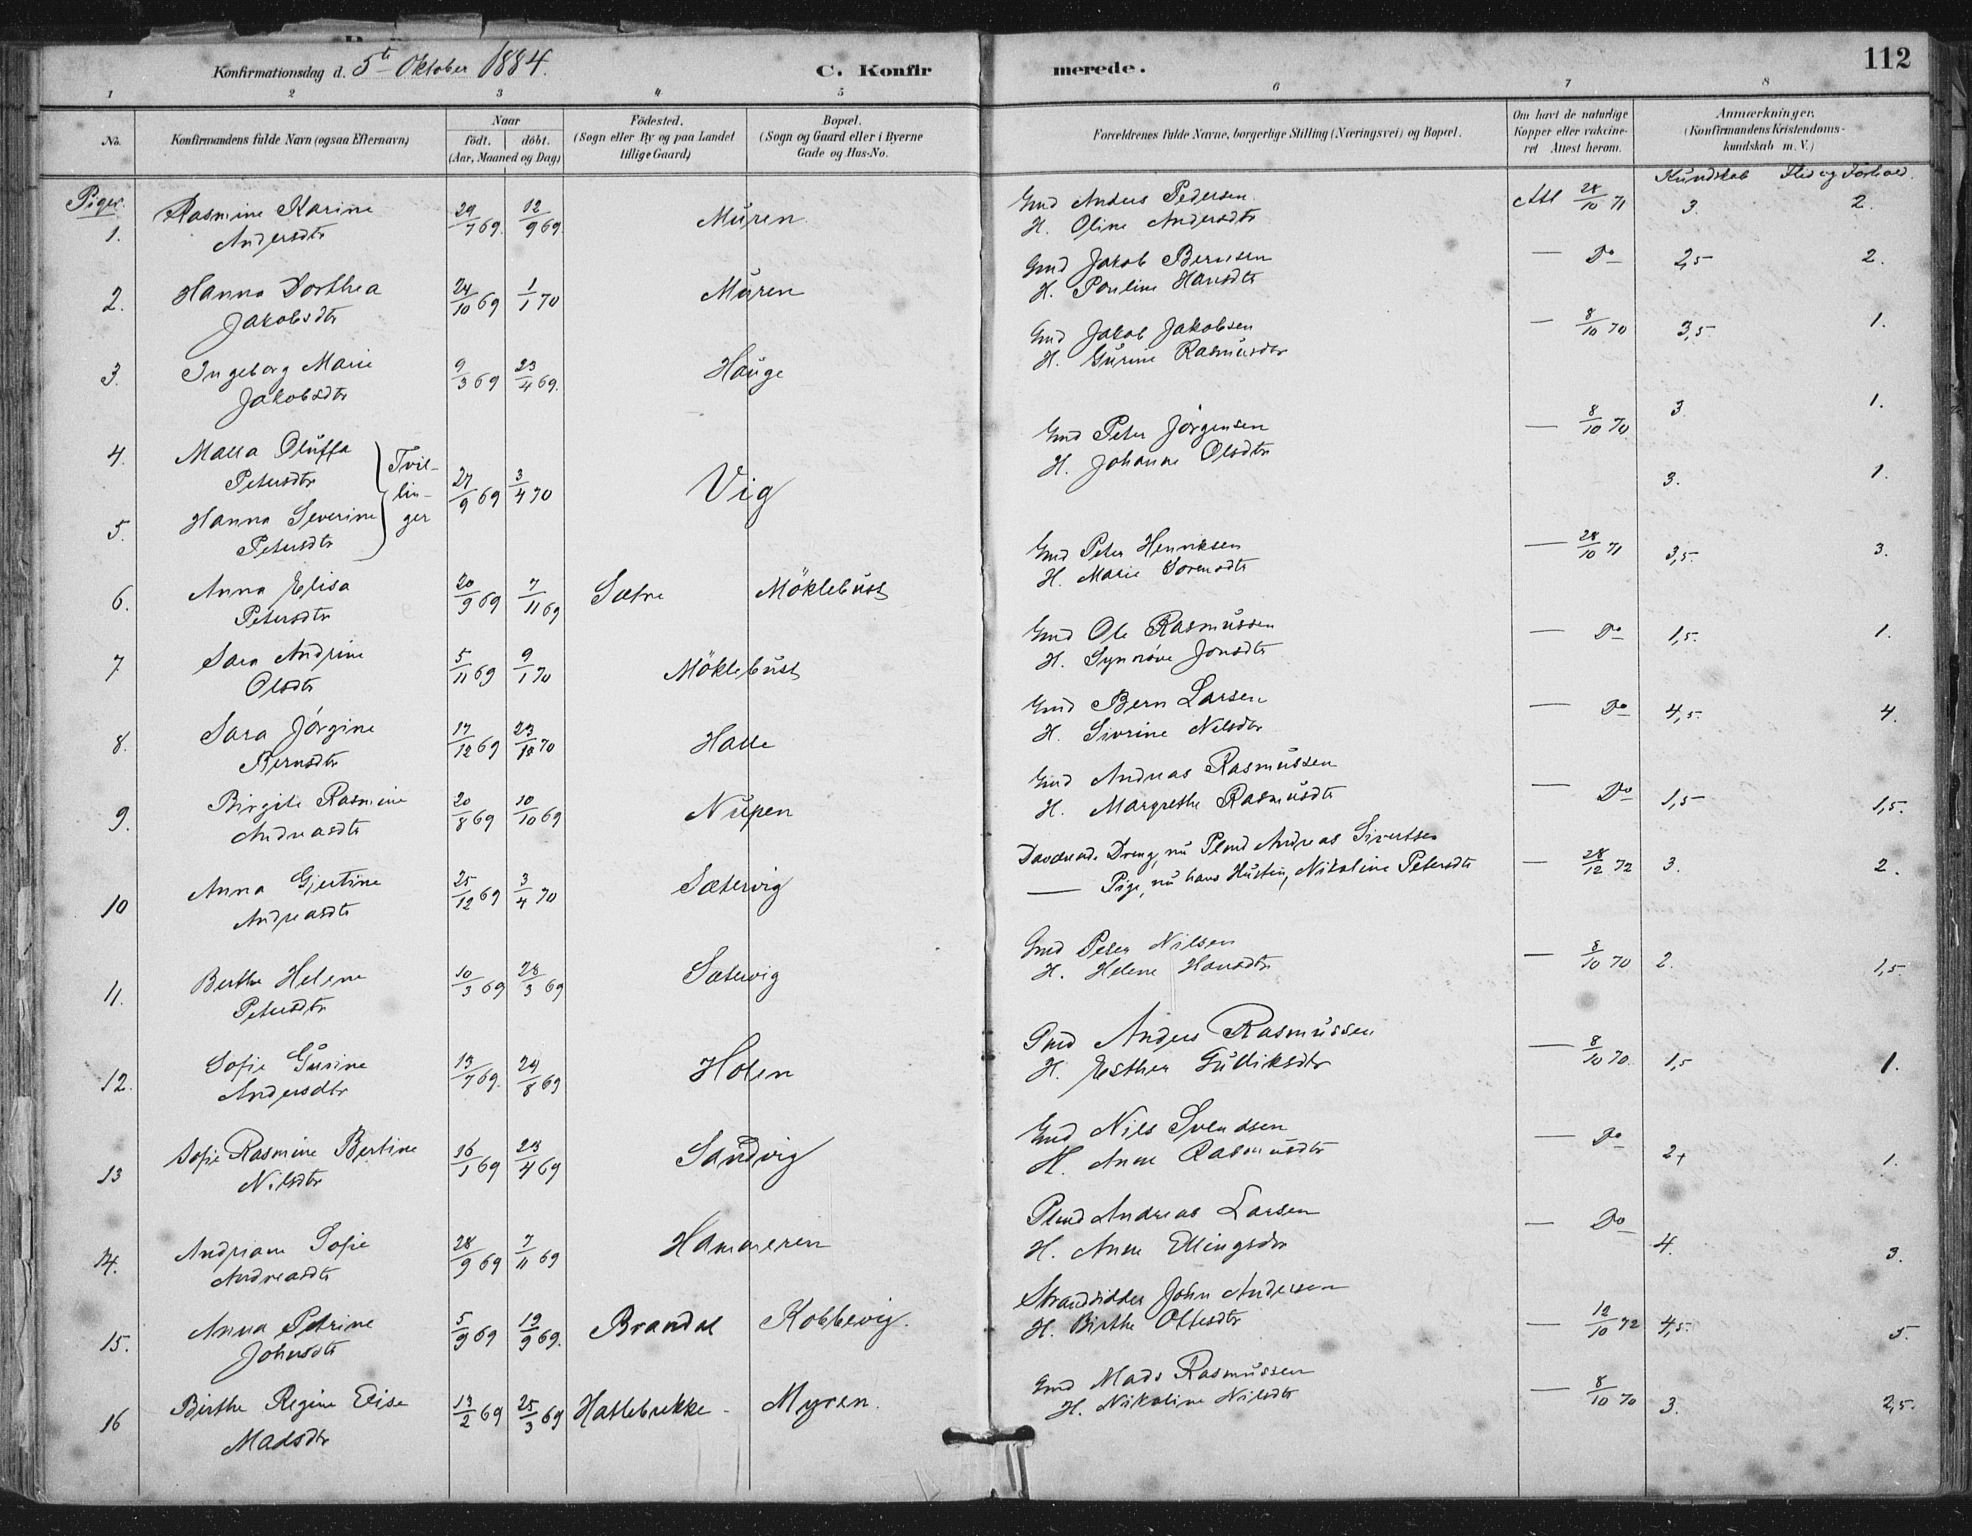 Konfirmationsdag d. 5te Oktober 1884. C. Konfirmerede. 112
1 2 3 4 5 6 7 8
No. Konfirmandens fulde Navn (ogsaa Efternavn) Naar født. døbt. (Aar, Maaned og Dag) Födested. (Sogn eller By og paa Landet tillige Gaard) Bopæl. (Sogn og Gaard eller i Byerne Gade og Hus-No. Forældrenes fulde Navne, borgerlige Stilling (Næringsvei) og Bopæl. Om havt de naturlige Kopper eller vakcineret Attest herom. Anmærkninger. (Konfirmandens Kristendomskundskab m. V.)
Kundskab Flid og Forhold.
Piger.
1. Rasmine Karine Andersdtr 29/7 69. 12/9 69. Müren Gmd Anders Pedersen
H. Oline Andersdtr Att 28/10 71 3. 2.
2. Hanna Dorthea Jakobsdtr 24/10 69 1/1 70 Müren Gmd Jakob Bernsen
H. Pouline Hansdtr — Do 2,5 2.
3. Ingeborg Marie Jakobsdtr 9/3 69 23/4 69. Hauge Gmd Jakob Jakobsen
H. Gurine Rasmusdtr — 8/10 70 3,5 1.
4. Malla Oluffa Petersdtr Tvillinger 27/9 69 3/4 70 Vig Gmd Peter Jörgensen
H. Johanne Olsdtr — 8/10 70 3. 1.
5. Hanna Severine Petersdtr 3. 1.
6. Anna Elisa Petersdtr 20/9 69 7/11 69 Sætre Möklebust Gmd Peter Henriksen
H. Marie Sorensdtr — 28/10 71 3,5 3.
7 Sara Andrine Olsdtr 5/11 69 9/1 70 Möklebust Gmd Ole Rasmussen
H. Synnöve Jonsdtr — Do 1,5. 1.
8. Sara Jörgine Bernsdtr 17/12 69 23/10 70 Halle Gmd Bern Larsen
H. Sivrine Nilsdtr — Do 4,5. 4.
9. Birgite Rasmine Andreasdtr 20/8 69 10/10 69 Nupen Gmd Andreas Rasmussen
H. Margrethe Rasmusdtr — Do 1,5 1,5.
10 Anna Gjertine Andreasdtr 25/12 69 3/4 70 Sætervig Daværende Dreng, nu Plmd Andreas Sivertsen
— Pige, nu hans Hustru, Nikoline Petersdtr — 28/12 72 3. 2.
11. Berthe Helene Petersdtr 10/3 69 28/3 69 Sætervig Gmd Peter Nilsen
H. Helene Hansdtr — 8/10 70 2. 1,5.
12. Sofie Gurine Andersdtr 13/7 69. 29/8 69 Holen Pmd Anders Rasmussen
H. Esther Gulliksdtr — 8/10 70. 1,5 1.
13 Sofie Rasmine Bertine Nilsdtr 16/1 69 23/4 69 Sandvig Gmd Nils Svendsen
H. Anne Rasmusdtr — Do 2+ 1.
14. Andriane Sofie Andreasdtr 28/9 69 7/11 69 Hammeren Plmd Andreas Larsen
H. Anne Ellingsdtr — Do 4. 3.
15. Anna Petrine Johnsdtr 5/9 69 19/9 69. Brandal Kobbevig. Strandsidder John Andersen
H. Birthe Ottesdtr — 12/10 72 4,5. 5.
16 Birthe Regine Elise Madsdtr 13/2 69 25/3 69 Hatlebrekke - Myren. Gmd Mads Rasmussen
H. Nikoline Nilsdtr — 8/10 70 3. 2,5.